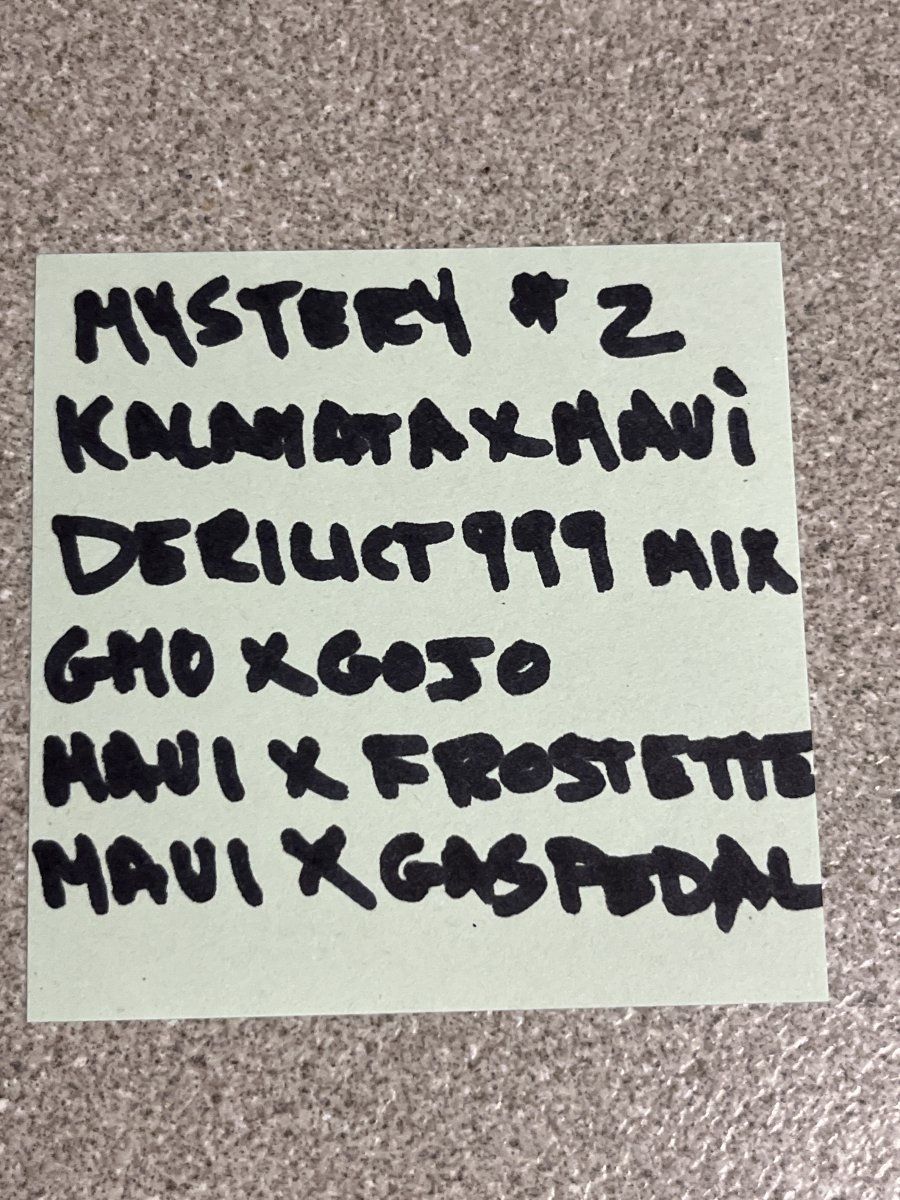 MYSTERY # 2
KALAMATA X MAUi
DERILICT 999 MIX
GMO X GOJO
MAUI X FROSTETTE
MAUI X GASPEDAL